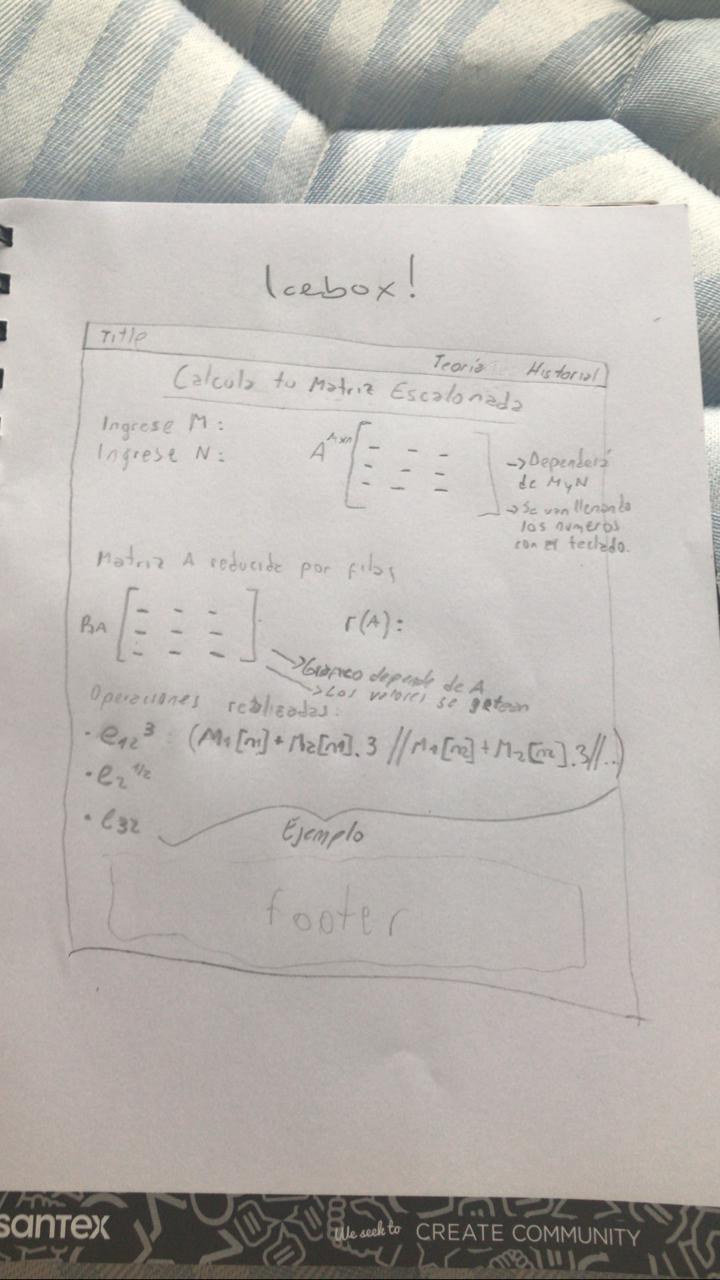 Icebox!
Title
Teoría Historial
Calcula tu Matriz Escalonada
Ingrese M:
Ingrese N:
A^Mxn [ - - - - - - - - - ]
→ Dependerá
de M y N
→ Se van llenando
los numeros
con el teclado.
Matriz A reducida por filas
BA [ - - - - - - - - - ]
r(A):
→ Gráfico depende de A
→ Los valores se getean
Operaciones realizadas:
• e12^3 : (M1[n]+M2[n].3 // M1[n2]+M2[n2].3//..)
• e2^1/2
• e32
Ejemplo
footer
santex
We seek to CREATE COMMUNITY